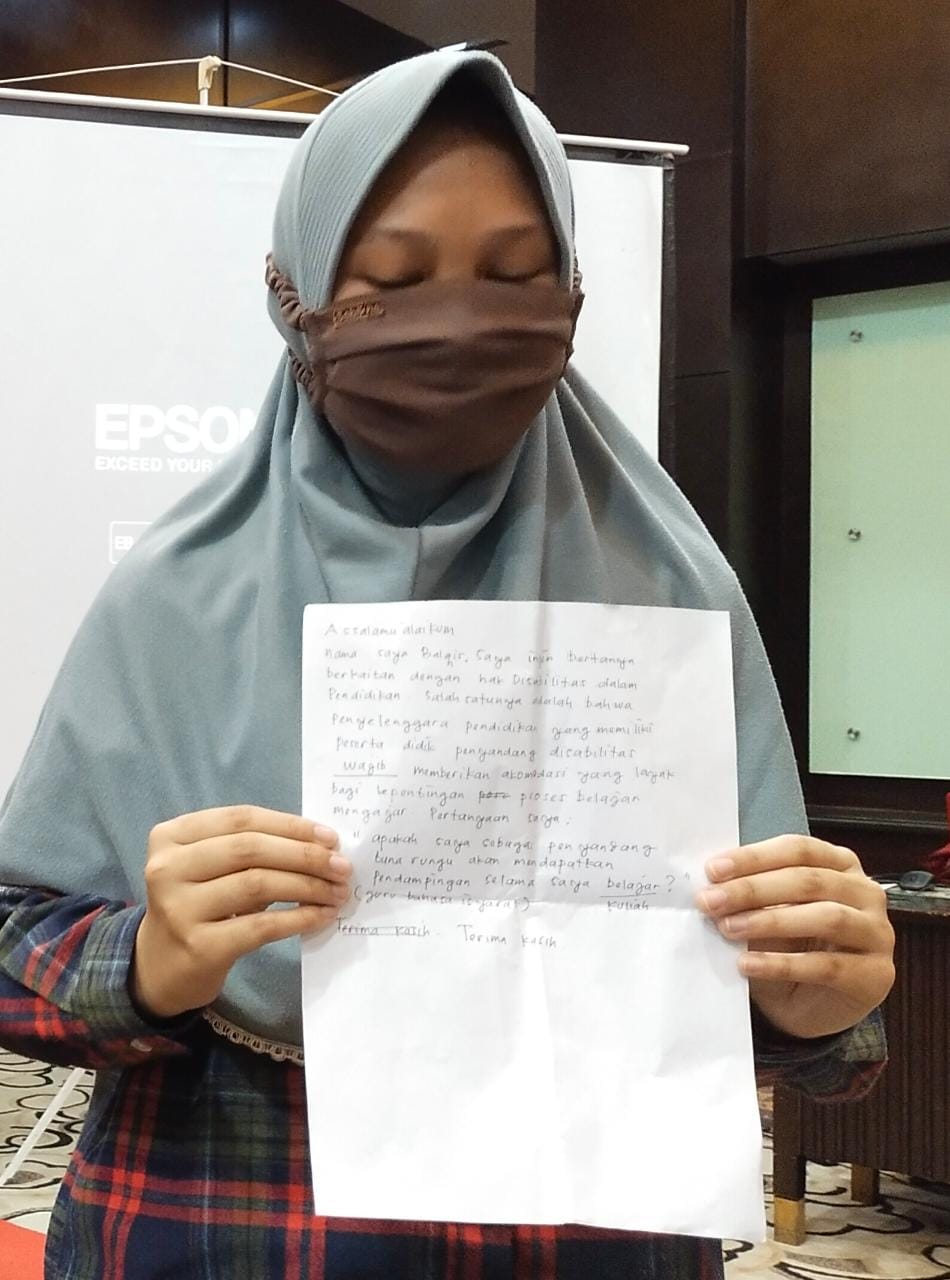 EPSON
EXCEED YOUR
Assalamu'alaikum
nama saya Balqis. Saya ingin bertanya
berkaitan dengan hak Disabilitas dalam
Pendidikan. Salah satunya adalah bahwa
Penyelenggara pendidikan yang memiliki
peserta didik penyandang disabilitas
wajib memberikan akomodasi yang layak
bagi kepentingan proses belajar
mengajar. Pertanyaan saya:
" apakah saya sebagai penyandang
tuna rungu akan mendapatkan
Pendampingan selama saya belajar? "
(guru bahasa isyarat) kuliah
Terima kasih. Terima kasih